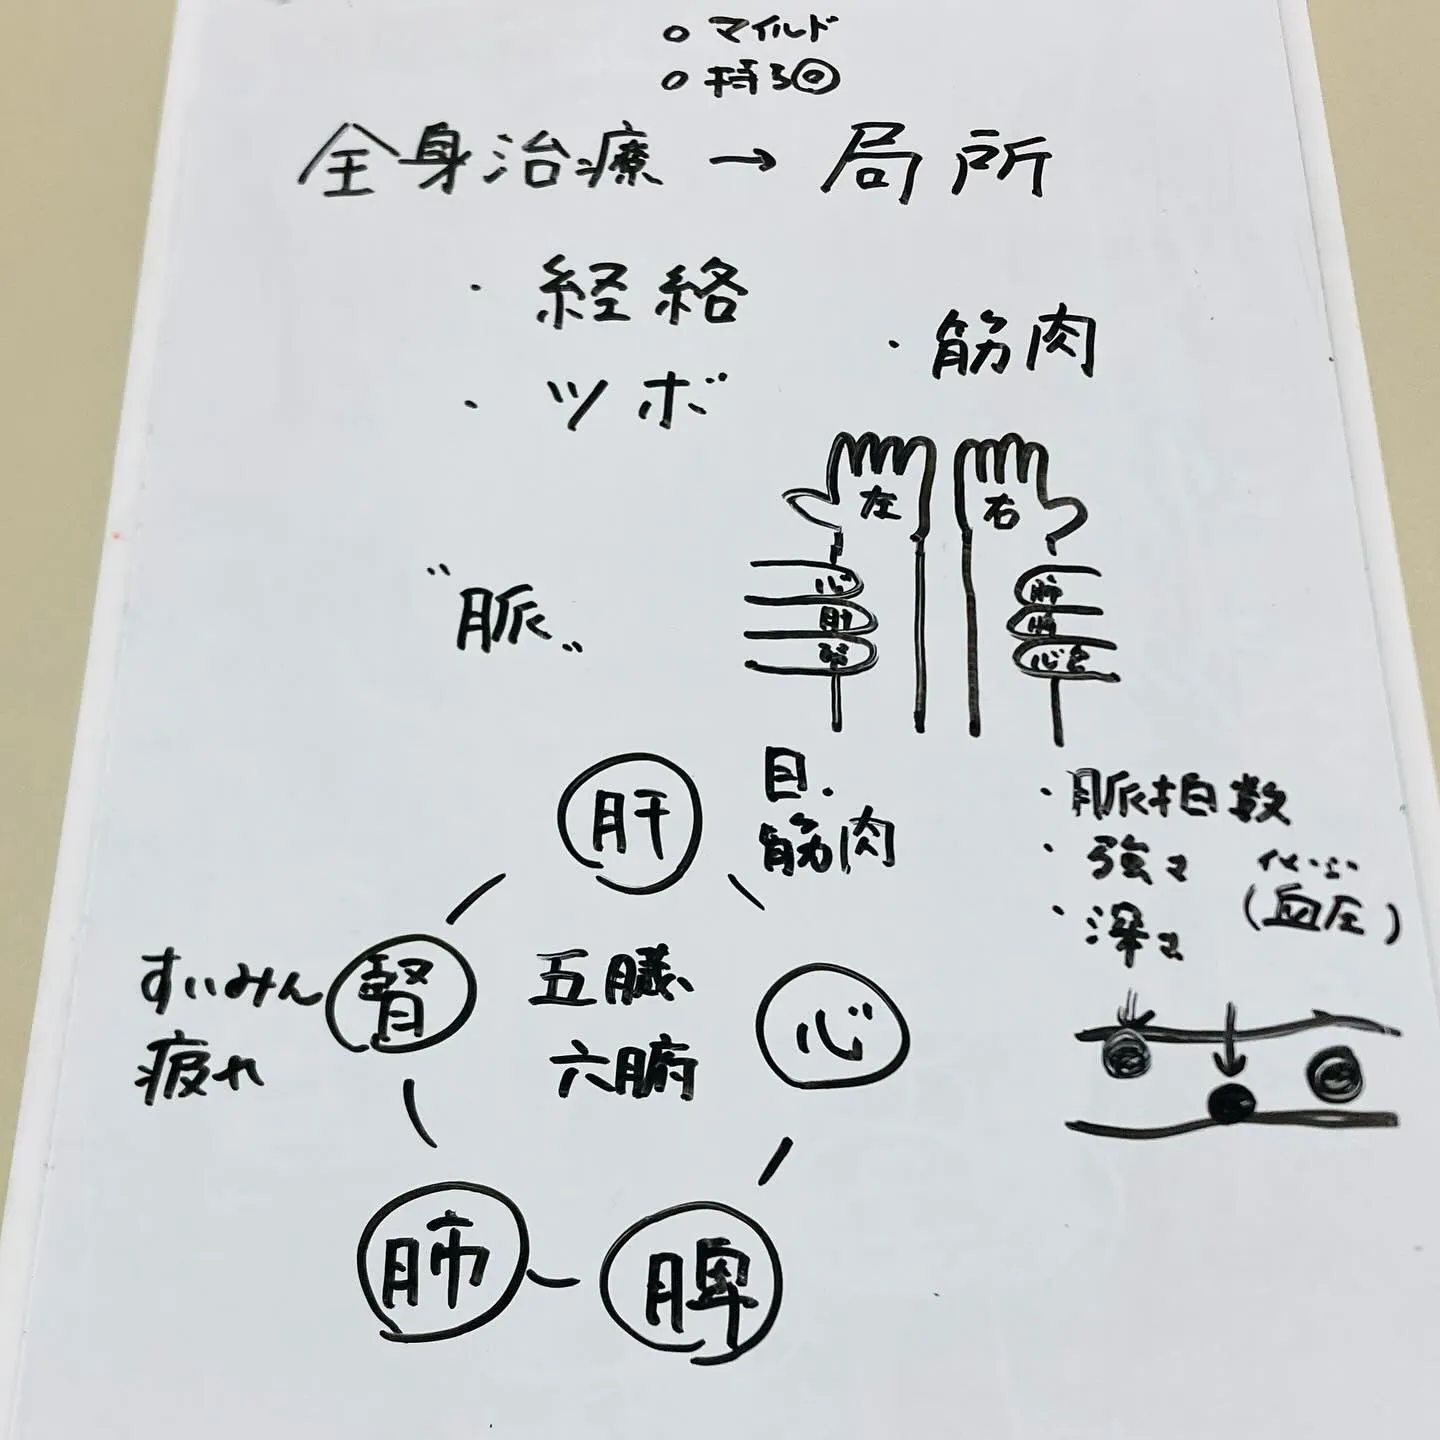 ○ マイルド
○ 持ち◎
全身治療 → 局所
・経絡
・筋肉
・ツボ
左 右
心
肝
腎
肺
脾
心包
"脈"
肝
目.
筋肉
・脈拍数
・強さ
(血圧)
・深さ
すいみん
疲れ
腎
五臓
六腑
心
肺
脾